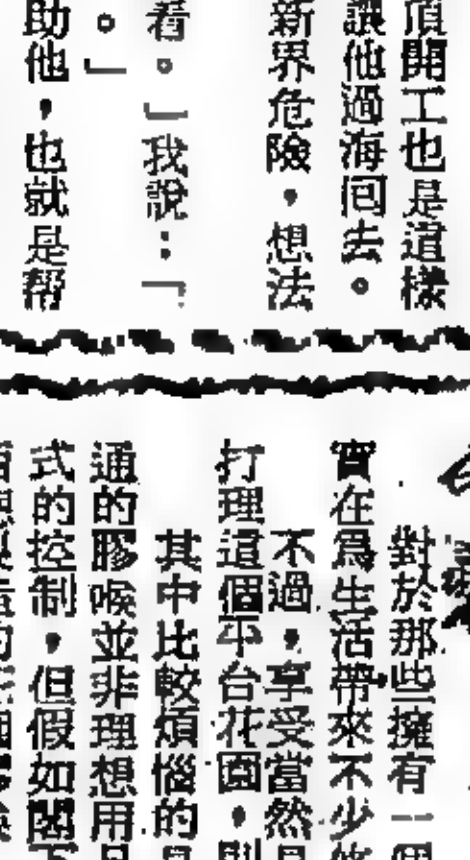 頂開工也是這樣
讓他過海囘去。
新界危險，想法
看。」我說：「
。」
助他，也就是幫
對於那些擁有一個
實在爲生活帶來不少
不過，享受當然
打理這個平台花園，
其中比較煩惱的
通的膠喉並非理想用
式的控制，但假如閣下